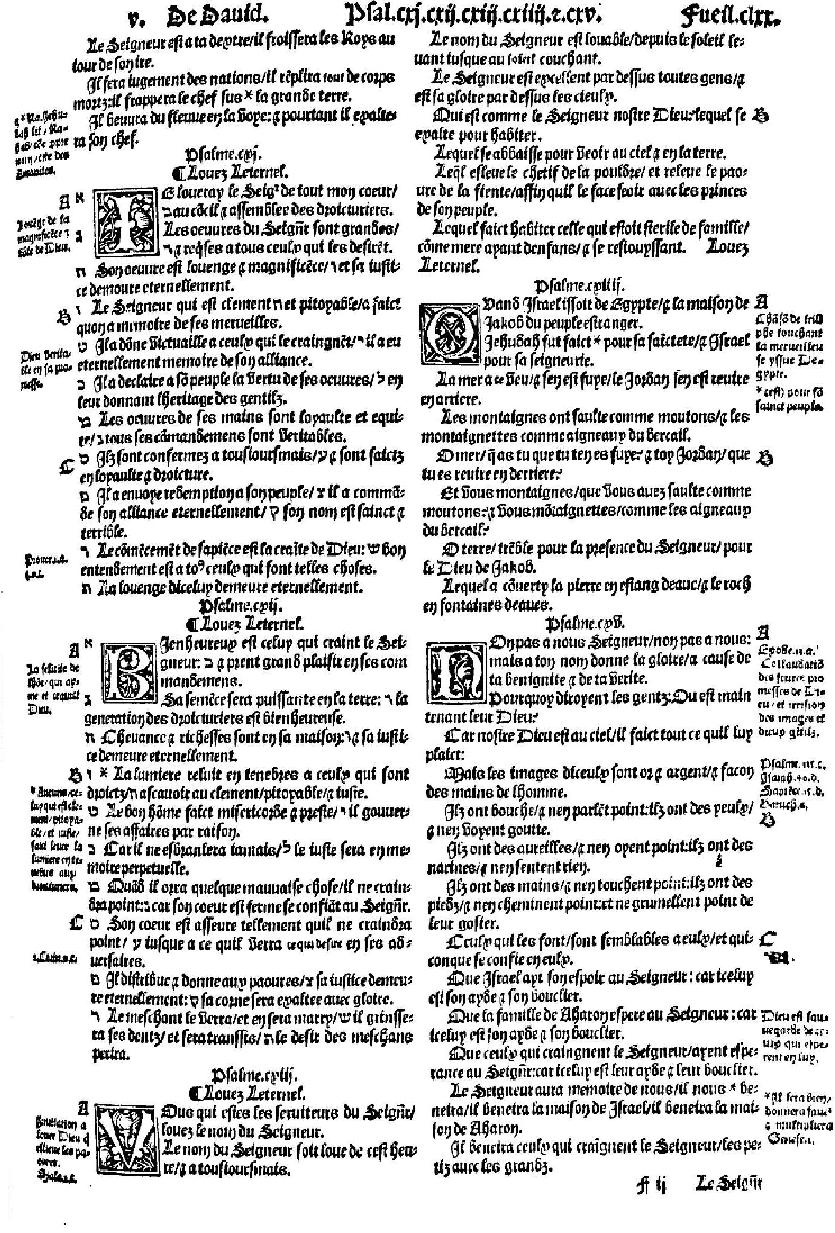 v. De Dauid. Psal.cxj.cxij.cxiij.cxiiij.⁊.cxv. Fueil.clxx.
Le Seigneur est a ta dextre/il froissera les Roys au
iour de son ire.
Il fera iugement des nations/il rēplira tout de corps
mortz:il frappera le chef sus * la grande terre.
Il beuura du fleuue en la voye:⁊ pourtant il exalte-
ra son chef.
Psalme.cxj.
¶Louez Leternel.
A
IE loueray le Seigr̄ de tout mon coeur/
ב au cōseil ⁊ assemblee des droicturiers.
Les oeuures du Seign̄r sont grandes/
ד ⁊ reqses a tous ceulx qui les desirēt.
ה Son oeuure est louenge ⁊ magnificēce/ו et sa iusti-
ce demoure eternellement.
B
ז Le Seigneur qui est clement ח et pitoyable/a faict
quon a mimoire de ses merueilles.
ט Il a dōne victuaille a ceulx qui le craingnēt/י il a eu
eternellement memoire de son alliance.
כ Il a declaire a sō peuple la vertu de ses oeuures/ל en
leur donnant lheritage des gentilz.
מ Les oeuures de ses mains sont loyaulte et equi-
te/נ tous ses cōmandemens sont veritables.
C
ס Ilz sont confermez a tousioursmais/ע ⁊ sont faictz
en loyaulte ⁊ droicture.
פ Il a enuoye redemption a son peuple/צ il a commā-
de son alliance eternellement/ק son nom est sainct ⁊
terrible.
ר Le cōmēcemēt de sapiēce est la craīte de Dieu: ש bon
entendement est a to⁹ ceulx qui font telles choses.
ת La louenge diceluy demeure eternellement.
Psalme.cxij.
¶Louez Leternel.
A
BIenheureux est celuy qui craint le Sei-
gneur: ב ⁊ prent grand plaisir en ses com
mandemens.
ג Sa semēce sera puissante en la terre: ד la
generation des droicturiers est bienheureuse.
ה Cheuance ⁊ richesses sont en sa maison:ו ⁊ sa iusti-
ce demeure eternellement.
B
ז * La lumiere reluit en tenebres a ceulx qui sont
droictz/ח ascauoir au clement/pitoyable/⁊ iuste.
ט Le bon hōme faict misericorde ⁊ preste/י il gouuer-
ne ses affaires par raison.
כ Car il ne esbranlera iamais/ל le iuste sera en me-
moire perpetuelle.
מ Quād il orra quelque mauuaise chose/il ne crain-
dra point:נ car son coeur est ferme se confiāt au Seign̄r.
C
ס Son coeur est asseure tellement quil ne craindra
point/ ע iusque a ce quil verra ce qui desire en ses ad-
uersaires.
פ Il distribue ⁊ donne aux paoures/צ sa iustice demeu-
re eternellement:ק sa corne sera exaltee auec gloire.
ר Le meschant le verra/et en sera marry/ש il grinsse-
ra ses dentz/ et sera transsis/ת le desir des meschans
perira.
Psalme.cxiij.
¶Louez Leternel.
A
VOus qui estes les seruiteurs du Seign̄r/
louez le nom du Seigneur.
Le nom du Seigneur soit loue de cest heu-
re/⁊ a tousioursmais.
Le nom du Seigneur est louable/depuis le soleil le-
uant iusque au soleil couchant.
Le Seigneur est excellent par dessus toutes gens/⁊
est sa gloire par dessus les cieulx.
Qui est comme le Seigneur nostre Dieu:lequel se
exalte pour habiter.
B
Lequel se abbaisse pour veoir au ciel ⁊ en la terre.
Leq̄l esleue le chetif de la pouldre/ et releue le pao-
ure de la fiente/affin quil le face seoir auec les princes
de son peuple.
Lequel faict habiter celle qui estoit sterile de famille/
cōme mere ayant denfans/⁊ se resiouyssant. Louez
Leternel.
Psalme.cxiiij.
A
QVand Israel issoit de Egypte/⁊ la maison de
Jakob du peuple estranger.
Jehudah fut faict * pour sa saīctete/⁊ Israel
pour sa seigneurie.
La mer a ce veu/⁊ sen est fuye/le Jordan sen est retire
en arriere.
Les montaignes ont saulte comme moutons/⁊ les
montaignettes comme aigneaux du bercail.
B
O mer/q̄ as tu que tu ten es fuye:⁊ toy Jordan/que
tu es retire en derriere:
Et vous montaignes/que vous auez saulte comme
moutons:⁊ vous mōtaignettes/comme les aigneaux
du bercail:
O terre/trēble pour la presence du Seigneur/pour
le Dieu de Jakob.
Lequel a cōuerty la pierre en estang deaue/⁊ le roch
en fontaines deaues.
Psalme.cxv.
A
NOn pas a nous Seigneur/non pas a nous:
mais a ton nom donne la gloire/a cause de
ta benignite ⁊ de ta verite.
Pourquoy diroyent les gentz:Ou est main
tenant leur Dieu:
Car nostre Dieu est au ciel/il faict tout ce quil luy
plaict:
Mais les images diceulx sont or ⁊ argent/⁊ facon
des mains de lhomme.
B
Ilz ont bouche/⁊ nen parlēt point:ilz ont des yeulx/
⁊ nen voyent goutte.
Ilz ont des aureilles/⁊ nen oyent point:ilz ont des
narines/⁊ nen sentent rien.
Ilz ont des mains/⁊ nen touchent point:ilz ont des
piedz/⁊ nen cheminent point:et ne grumellent point de
leur gosier.
C
Ceulx qui les font/sont semblables a eulx/et qui-
conque se confie en eulx.
Que Israel ayt son espoir au Seigneur: car icelup
est son ayde ⁊ son bouclier.
Que la famille de Aharon espere au Seigneur: car
iceluy est son ayde ⁊ son bouclier.
Que ceulx qui craingnent le Seigneur/ayent espe-
rance au Seign̄r:car iceluy est leur ayde ⁊ leur bouclier.
Le Seigneur aura memoire de nous/il nous * be-
neira/il beneira la maison de Israel/il beneira la mai-
son de Aharon.
Il beneira ceulx qui craignent le Seigneur/les pe-
tiz auec les grandz.
F ij Le Seign̄r